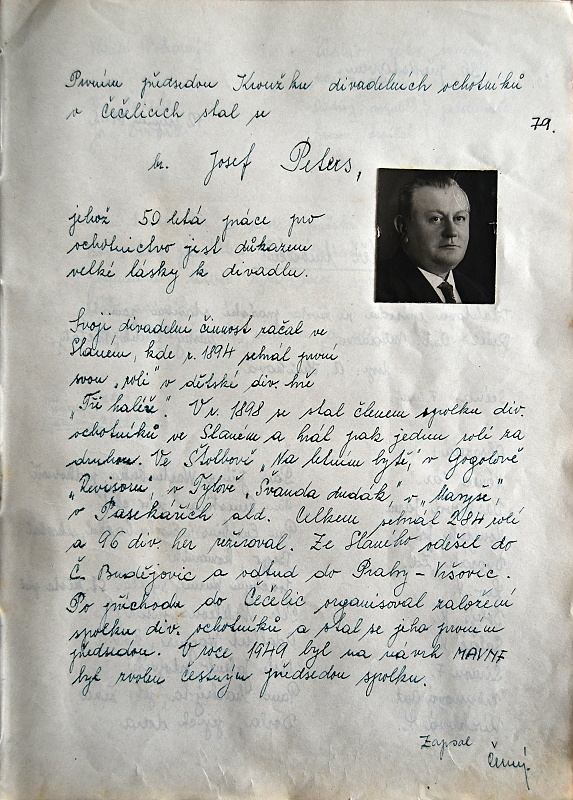 Prvním předsedou Kroužku divadelních ochotníků
v Čečelicích stal se
79.
br. Josef Peters,
jehož 50 letá práce pro
ochotnictvo jest důkazem
velké lásky k divadlu.
Svoji divadelní činnost začal ve
Slaném, kde r. 1894 sehrál první
svou „roli" v dětské div. hře
„Tři halíře". V r. 1898 se stal členem spolku div.
ochotníků ve Slaném a hrál pak jednu roli za
druhou. Ve Štolbově „Na letním bytě", v Gogolově
„Revisoru", v Tylově „Švanda dudák" v „Maryše",
v Pasekářích atd. Celkem sehrál 284 rolí
a 96 div. her režisoval. Ze Slaného odešel do
Č. Budějovic a odtud do Prahy - Vršovic.
Po příchodu do Čečelic organisoval založení
spolku div. ochotníků a stal se jeho prvním
předsedou. V roce 1949 byl na návrh
byl zvolen čestným předsedou spolku.
Zapsal
Černý.